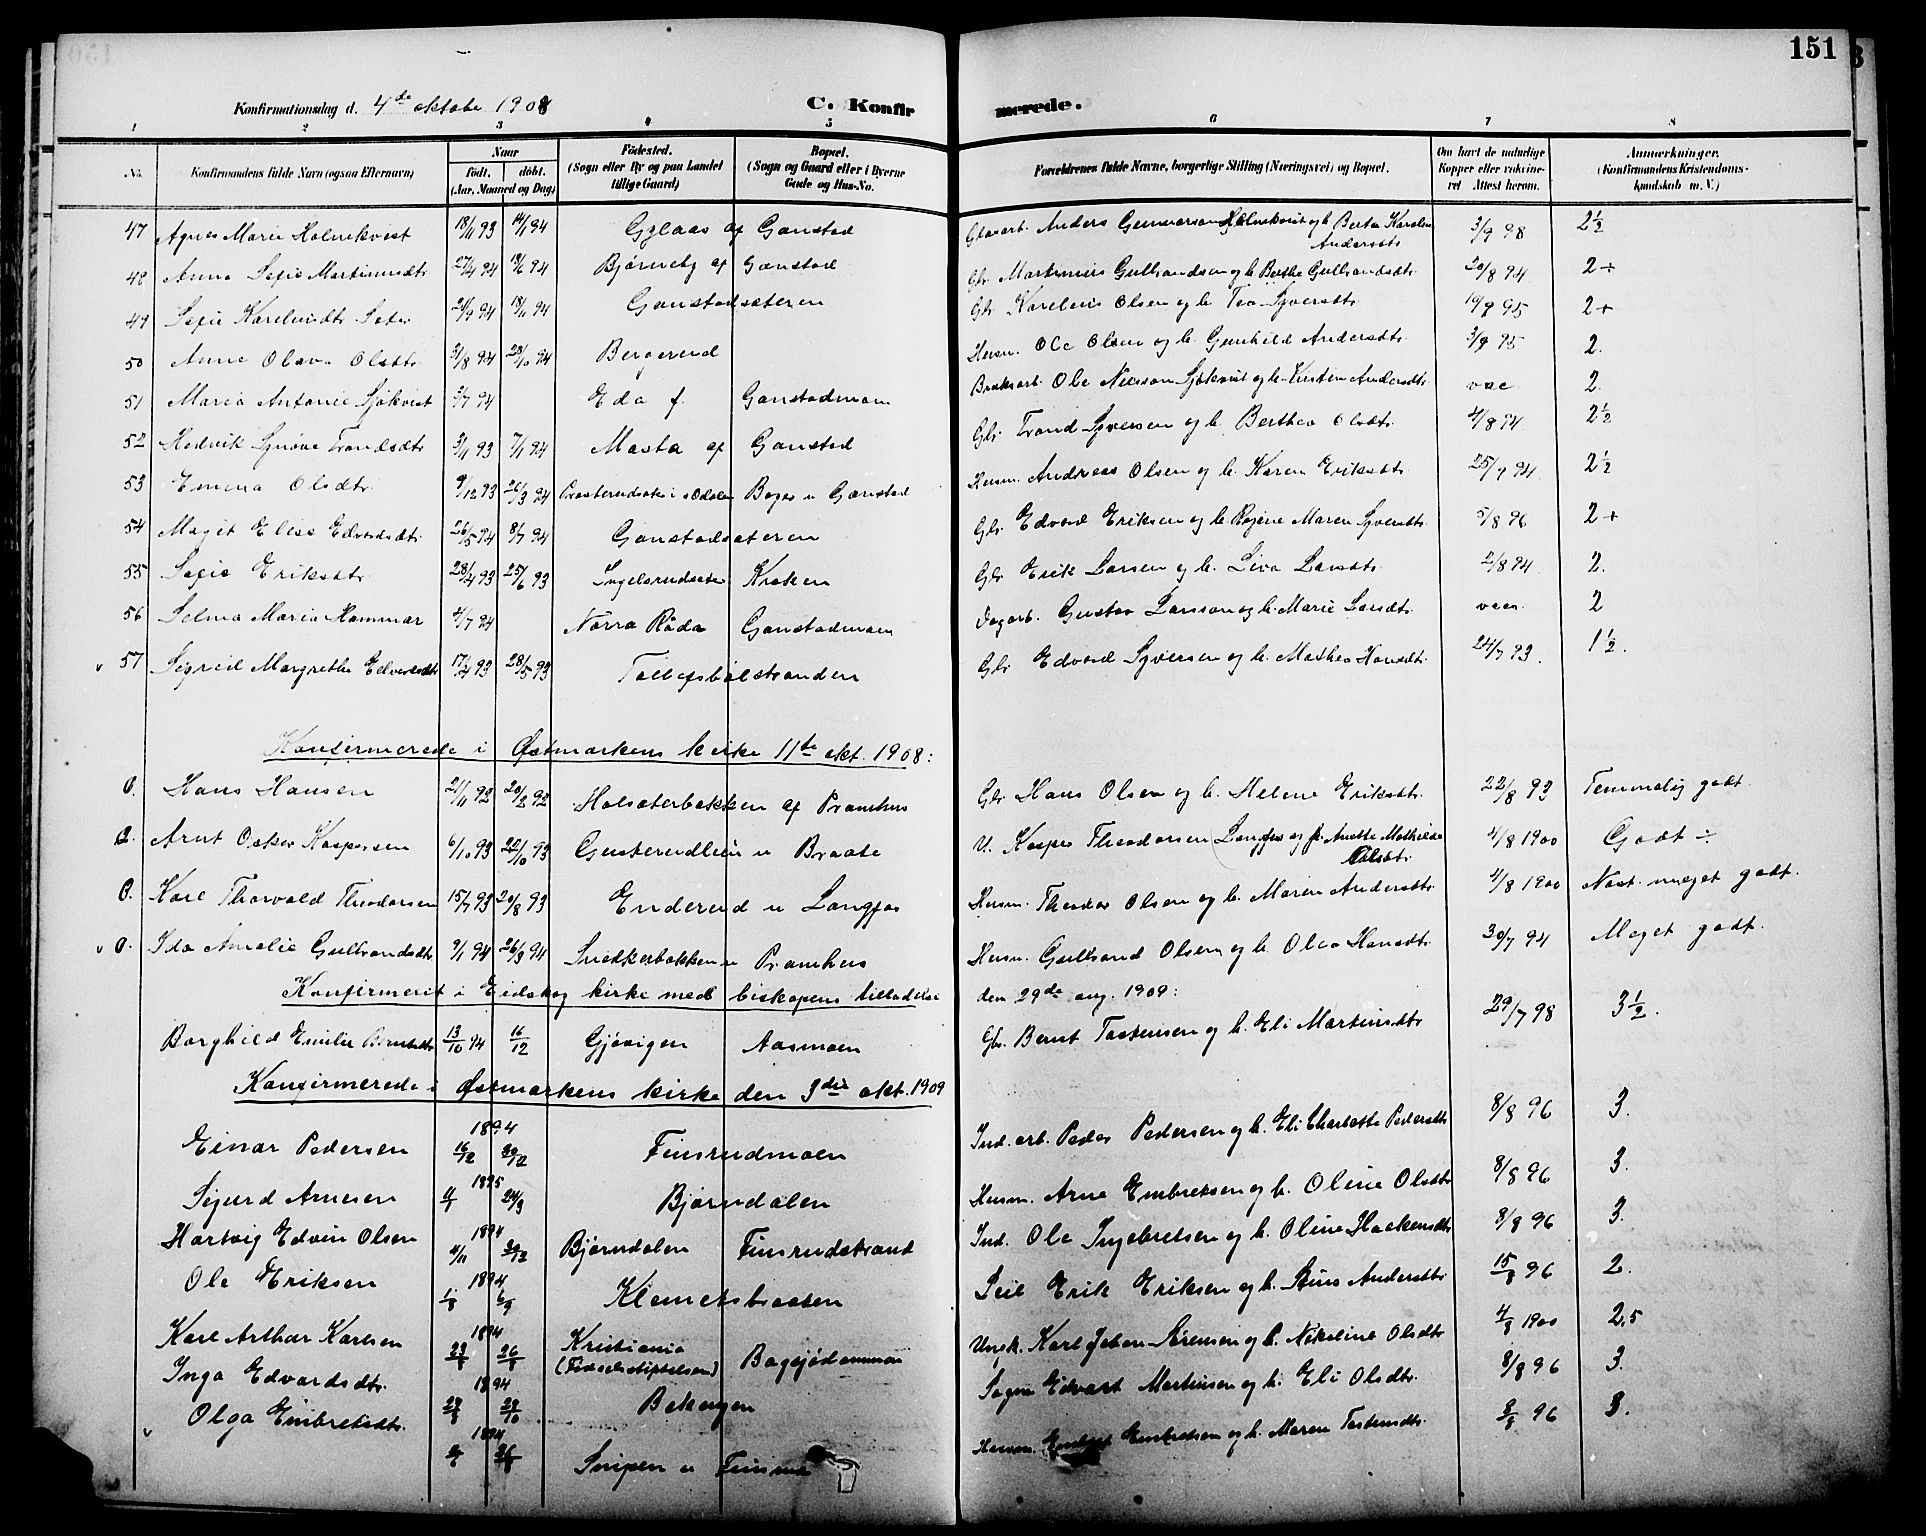 151
Konfirmationsdag d. 4de oktobe 1908 C. Konfirmerede.
1 2 3 4 5 6 7 8
No. Konfirmandens fulde Navn (ogsaa Efternavn) Naar født. døbt. (Aar, Maaned og Dag) Fødested. (Sogn eller By og paa Landet tillige Gaard) Bopæl. (Sogn og Gaard eller i Byerne Gade og Hus-No. Forældrenes fulde Navne, borgerlige Stilling (Næringsvei) og Bopæl. Om havt de naturlige Kopper eller vaksineret Attest herom. Anmærkninger. (Konfirmandens Kristendomskundskab m. V.)
47 Agnes Marie Holmekvest 18/11 93 14/1 94 Gylaas af Gaustad Glasarb. Anders Gunnarson Holmekvist og h. Berta Karoline Andersdtr 3/9 98 2½
48 Anna Sofie Martinusdtr 27/4 94 17/6 94 Bjørneby af Gaustad Gbr Martinius Gulbrandsen og h. Berthe Gulbrandsdtr 20/8 94 2÷
49 Sofie Kareliusdtr Sæter 21/9 94 18/11 94 Gaustadsæteren Gbr Karelius Olsen og h. Tea Syversdtr 19/9 95 2+
50 Anne Olava Olsdtr 3/8 94 28/10 94 Bergerud Husm. Ole Olsen og h. Gunhild Andersdtr 3/9 95 2.
51 Maria Antonie Sjökvist 3/7 94 Eda f. Gaustadmoen Bruksarb. Ole Nilsson Sjökvist og h. Kirstin Andersdtr vac. 2.
52 Hedvik Synøve Trondsdtr 3/11 93 7/1 94 Masta af Gaustad Gbr Trond Syversen og h. Berthea Olsdtr 4/8 94 2½
53 Emma Olsdtr 9/12 93 26/3 94 Præsterudsæter i s. Odalen Boger u Gaustad Husm. Andreas Olsen og h. Karen Eriksdtr 25/7 94 2½
54 Magit Elise Edvardsdtr 26/5 94 8/7 94 Gaustadsæteren Gbr Edvard Eriksen og h. Regine Maren Syversdtr 5/8 96 2+
55 Sofie Eriksdtr 28/4 93 25/6 93 Ingelsrudsæter Kroken Gbr Erik Larsen og h. Lina Larsdtr 2/8 94. 2.
56 Selma Maria Hammar 4/7 94 Norra Råda Gaustadmoen Dagarb. Gustav Larsson og h. Marie Larsdtr vacc. 2
57 Sigrid Margrethe Edvardsdtr 17/4 93 28/5 93 Tollefsbølstranden Gbr Edvard Syversen og h. Mathea Hansdtr 24/7 93. 1½.
Konfirmerede i Østmarkens kirke 11te okt. 1908:
O. Hans Hansen 21/11 92 20/2 92 Holsæterbakken af Pramhus Gbr Hans Olsen og h. Helene Eriksdtr 22/8 93 Temmelig godt
O. Arnt Oskar Kaspersen 6/10 93 22/10 93 Gusterudlien u Braate U. Kasper Theodorsen Langfos og p. Anette Mathilde Olsdtr 4/8 1900 Godt ÷
O. Karl Thorvald Theodorsen 15/7 93 20/8 93 Enderud u Langfos Husm. Theodor Olsen og h. Maren Andersdtr 4/8 1900 Næst. meget godt.
O. Ida Amalie Gulbrandsdtr 9/1 94 26/3 94 Snedkerbakken u Pramhus Husm. Gulbrand Olsen og h. Olea Hansdtr 30/7 94 Meget godt.
Konfirmeret i Eidskog kirke med biskopens tilladelse den 29de aug. 1909:
Borghild Emilie Berntsdtr 13/10 94 16/12 Gjøvigen Aasmoen Gbr. Bernt Tostensen og h. Eli Martinsdtr 29/7 98 3½.
Konfirmerede i Østmarkens kirke den 3die okt. 1909
Einar Pedersen 1894 16/12 30/12 Finsrudmoen Ind. arb. Peder Pedersen og h. Eli Charlotte Pedersdtr 8/8 96 3.
Sigurd Arnesen 1895 24/3 Bjørndalen Husm. Arne Embretsen og h. Oline Olsdtr 8/8 96 3.
Hartvig Edvin Olsen 1894 4/11 30/12 Bjørndalen Finsrudstrand Ind. Ole Ingebretsen og h. Oline Haakensdtr 8/8 96 3.
Ole Eriksen 1894 1/8 6/9 Klemetsbraaten Erik Eriksen og h. Andersdtr 15/8 96 2.
Karl Arthur Karlsen 1894 23/ 26/8 Kristiania (Fødselsstiftelsen) Bogsjødammen Ungk. Karl Johan Sørensen og p. Nikoline Olsdtr 4/8 1900 2,5
Inga Edvardsdtr. 1894 29/8 28/10 Bekengen Edvart Martinsen og h. Eli Olsdtr. 8/8 96 3.
Olga Embretsdtr. 1894 26/8 Snipen u Husm. Embretsen og h. Maren Tostensdtr. 8/8 96 3.